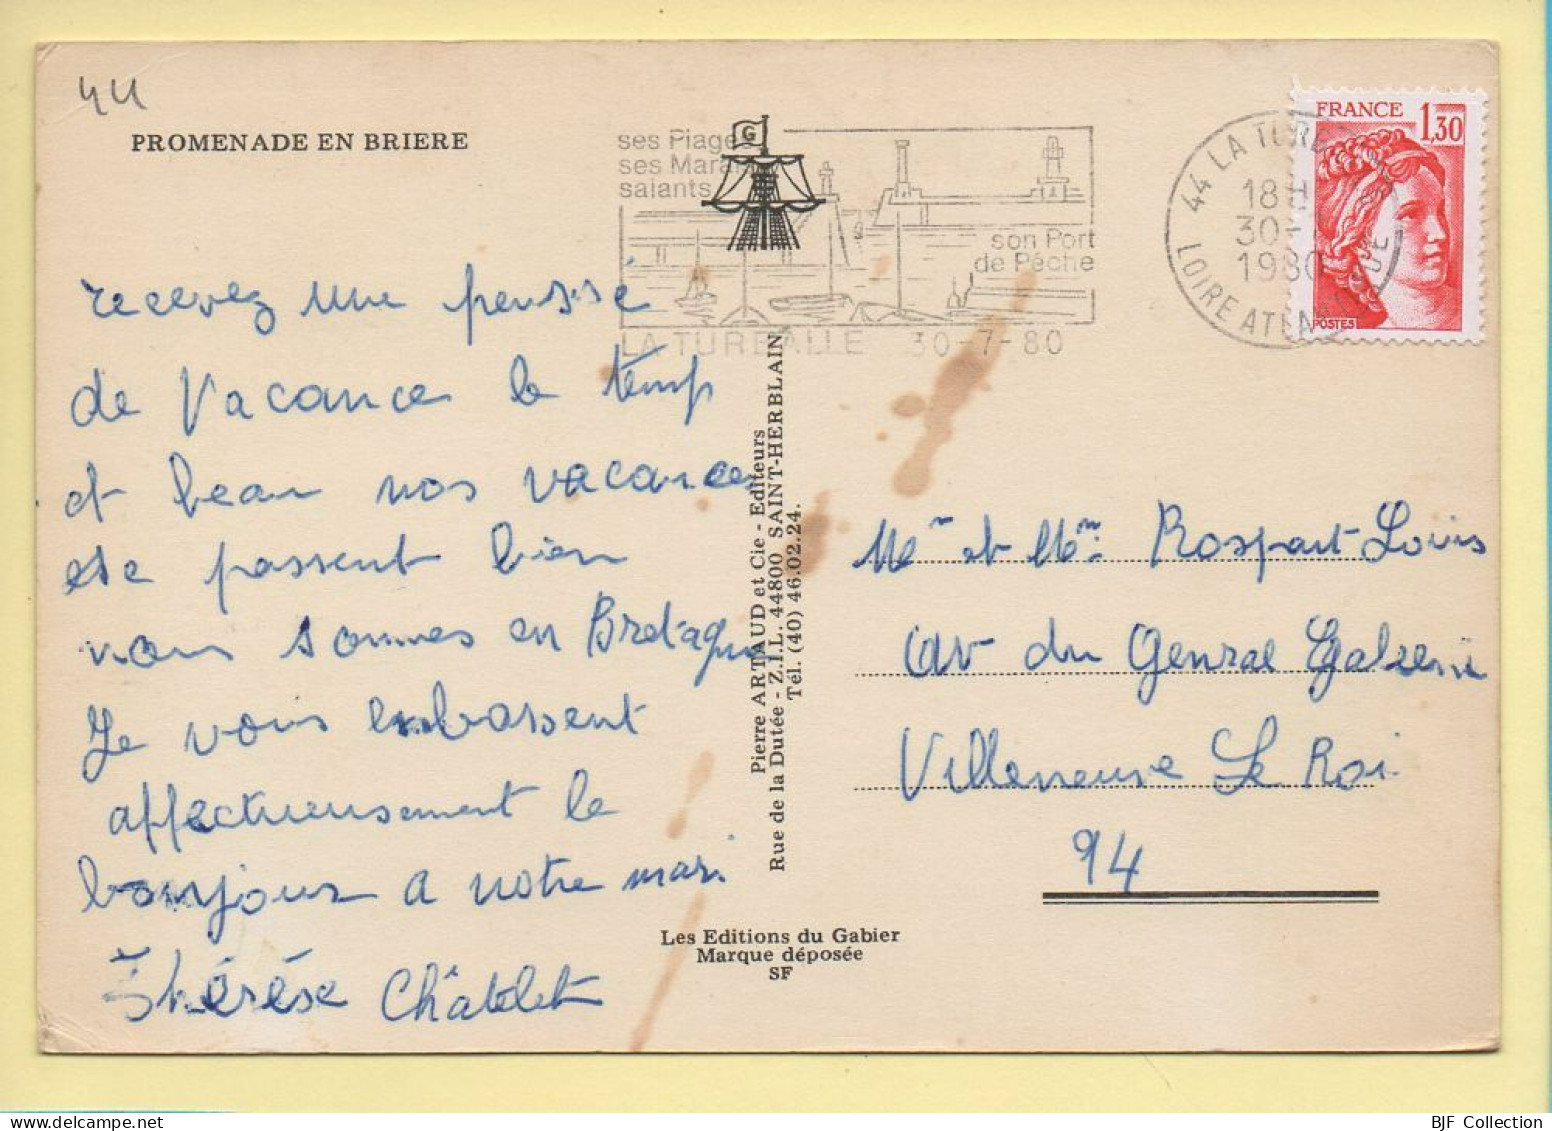 44
PROMENADE EN BRIERE
ses Plages
ses Marais
salants
G
son Port
de Pêche
LA TURBALLE 30-7-80
44 LA TURBALLE
18H
30-7
1980
LOIRE ATLANTIQUE
FRANCE 1,30
POSTES
recevez une pensisé
de Vacance le temp
et beau nos vacances
ese passent bien
nous sommes en Bretagne
Je vous embassent
affectueusement le
bonjour a notre mari
Thérèse Châtelet
Pierre ARTAUD et Cie - Editeurs
Rue de la Dutée - Z.I.L. 44800 SAINT-HERBLAIN
Tél. (40) 46.02.24.
Les Editions du Gabier
Marque déposée
SF
Mr et Mme Rospart Louis
av du Genral
Villeneuse Le Roi
94
BJF Collection